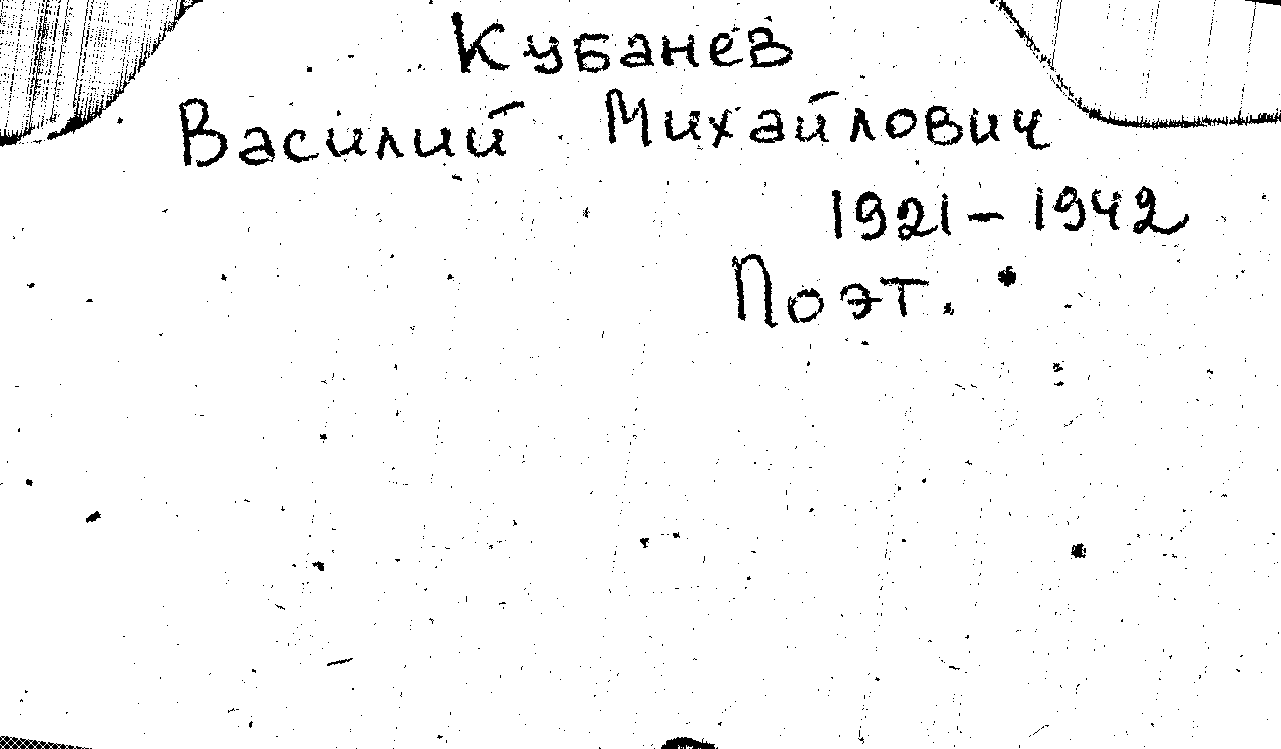 Кубанев
Василий Михайлович
1921-1942
Поэт.